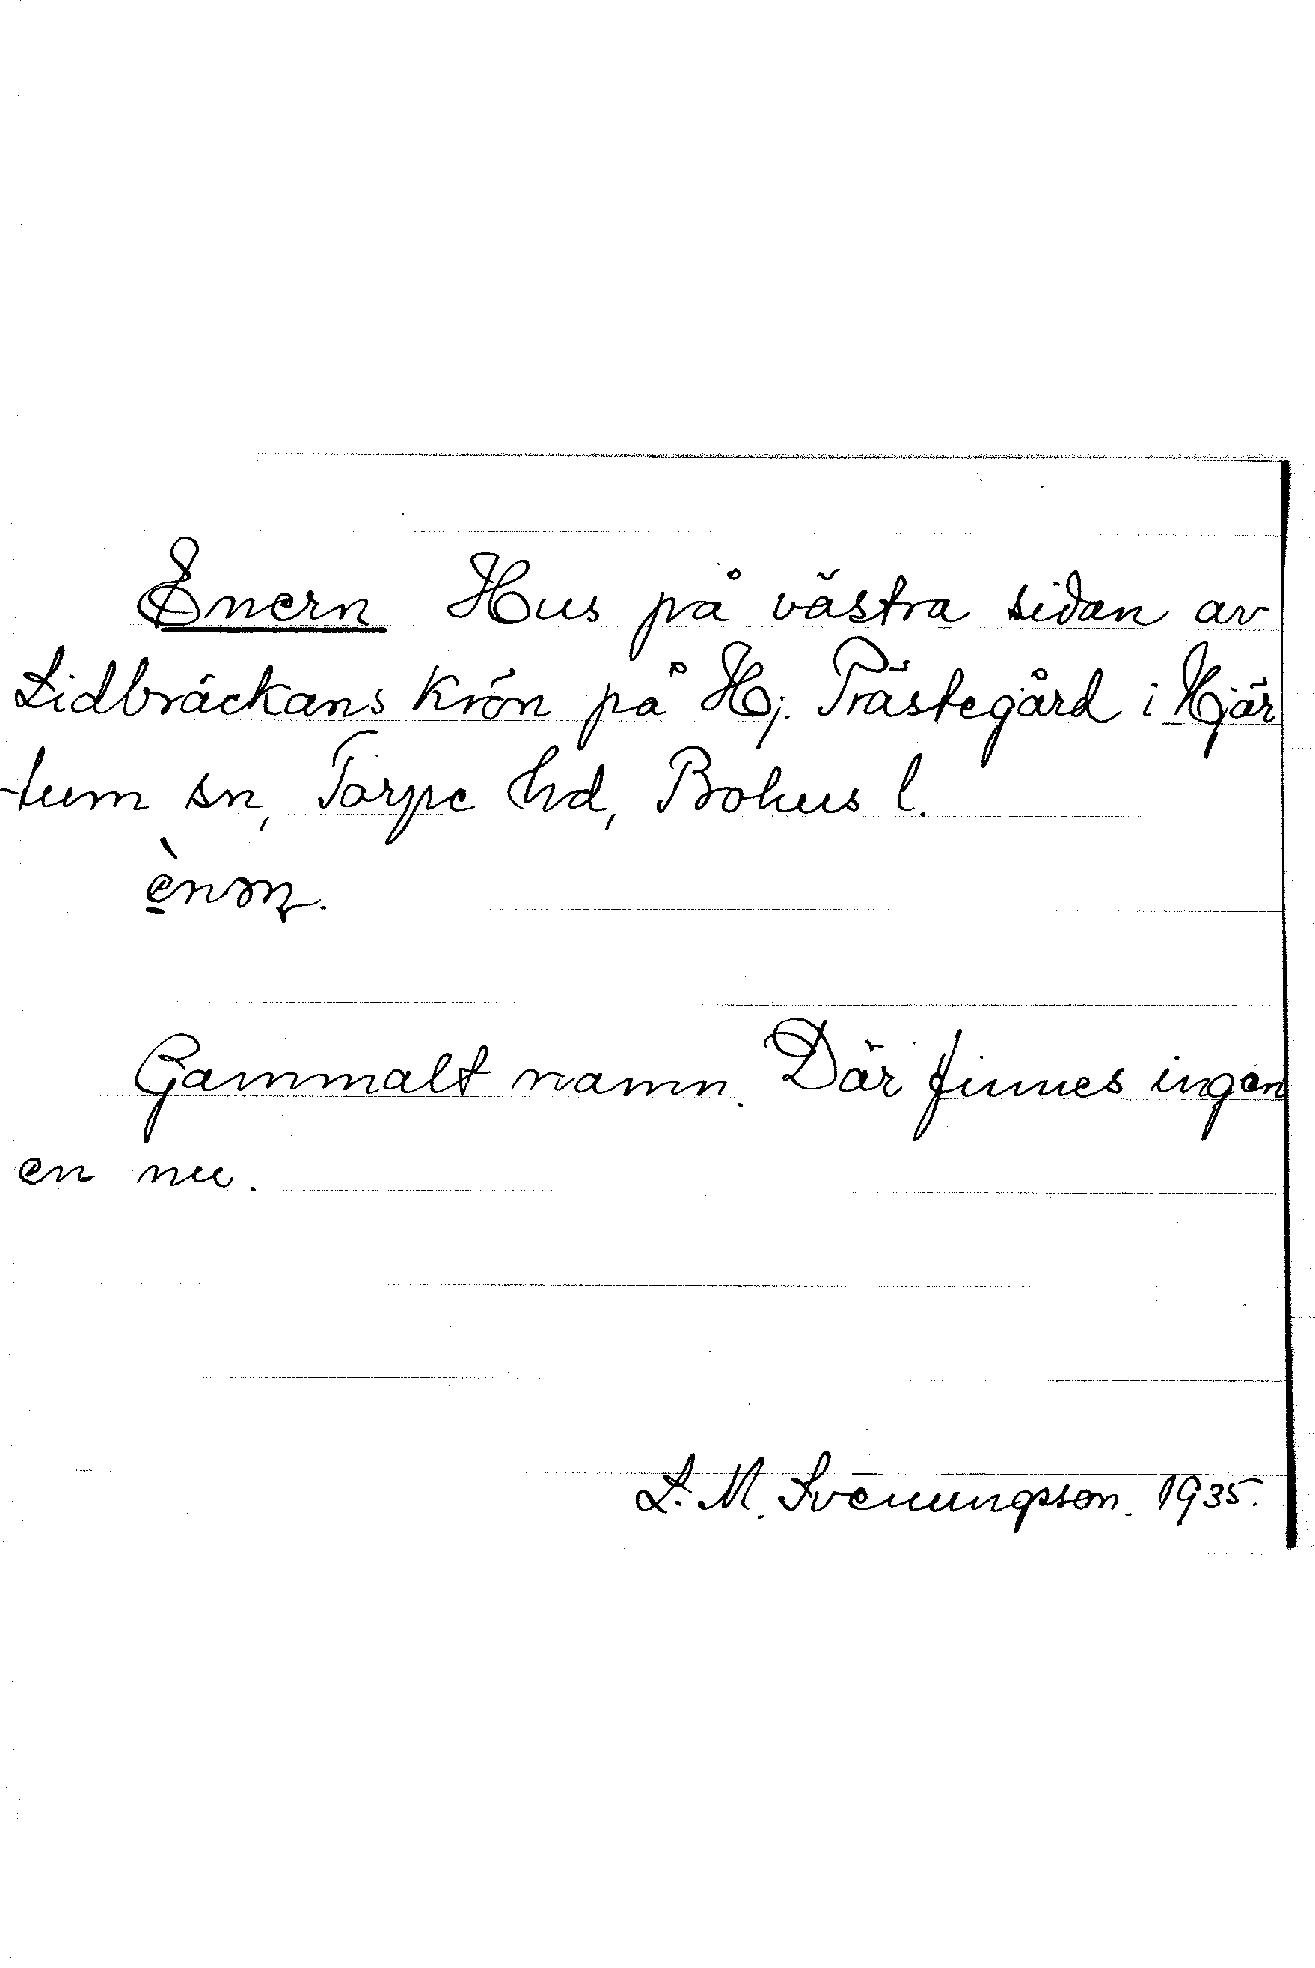 Enern Hus på västra sidan av
Lidbräckans krön på Hj. Prästegård i Hjär
tum sn, Torpe hd, Bohus l.
Gammalt namn. Där finnes ingen
en nu.
L. M. Svenungsson. 1935.